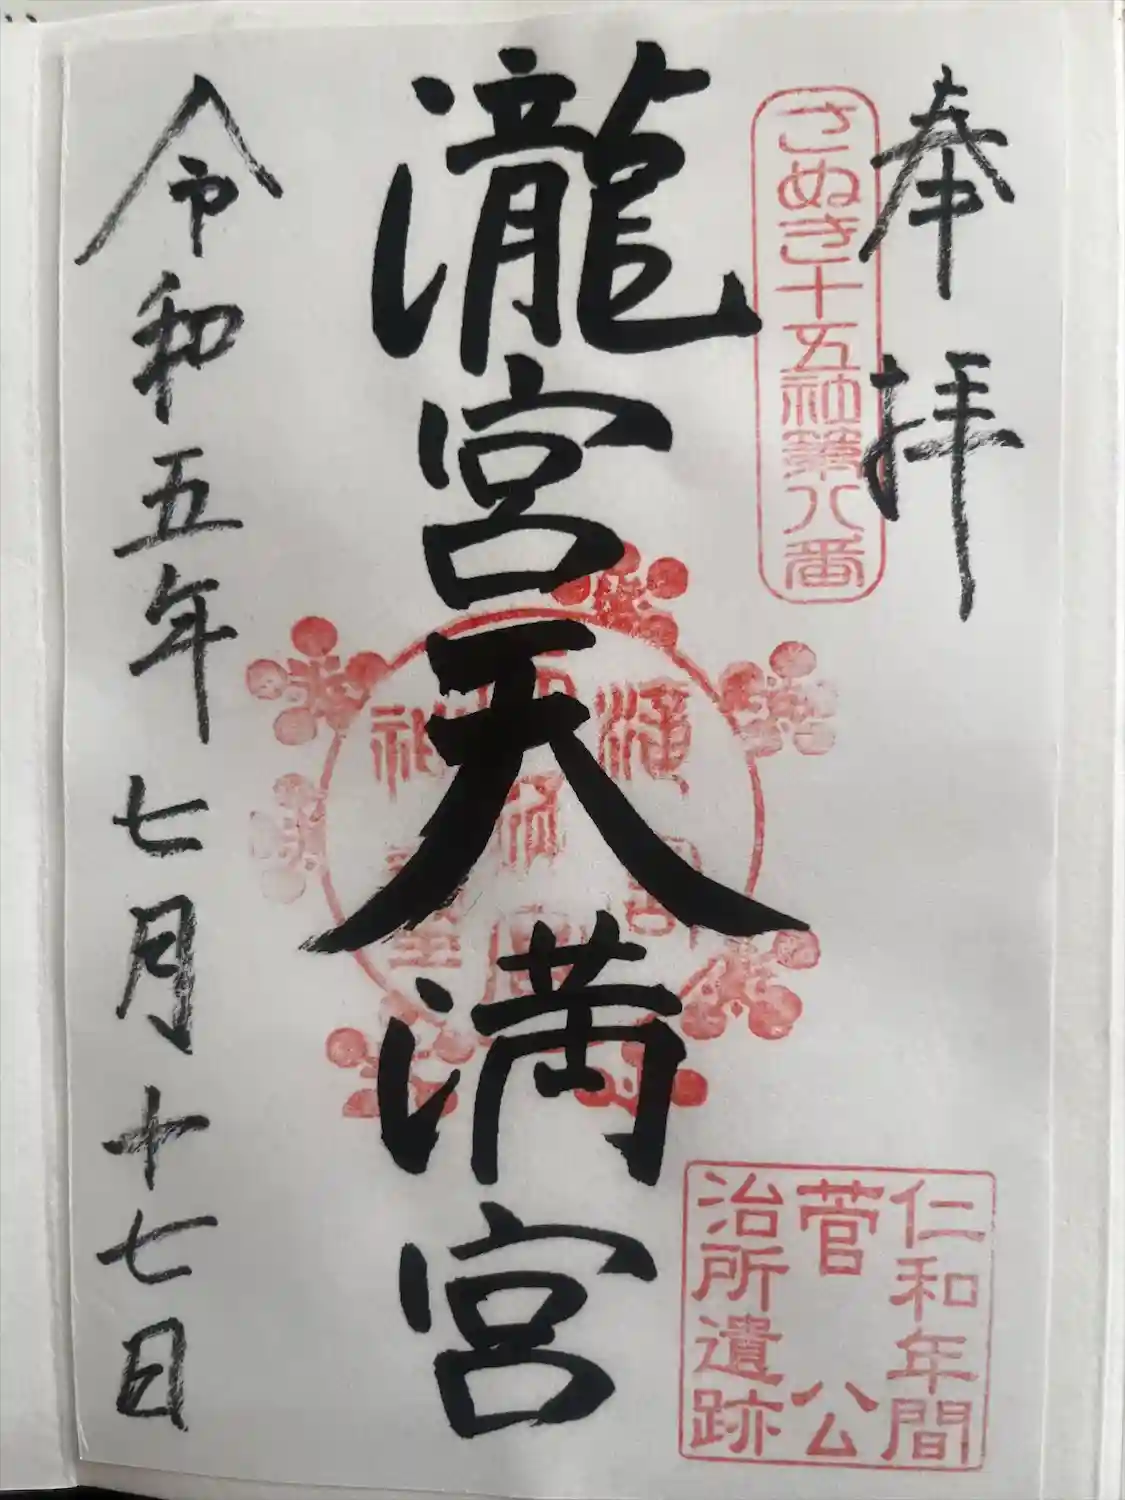 奉拝
さぬき十五社第八番
瀧宮天満宮
仁和年間
菅公
治所遺跡
令和五年七月十七日